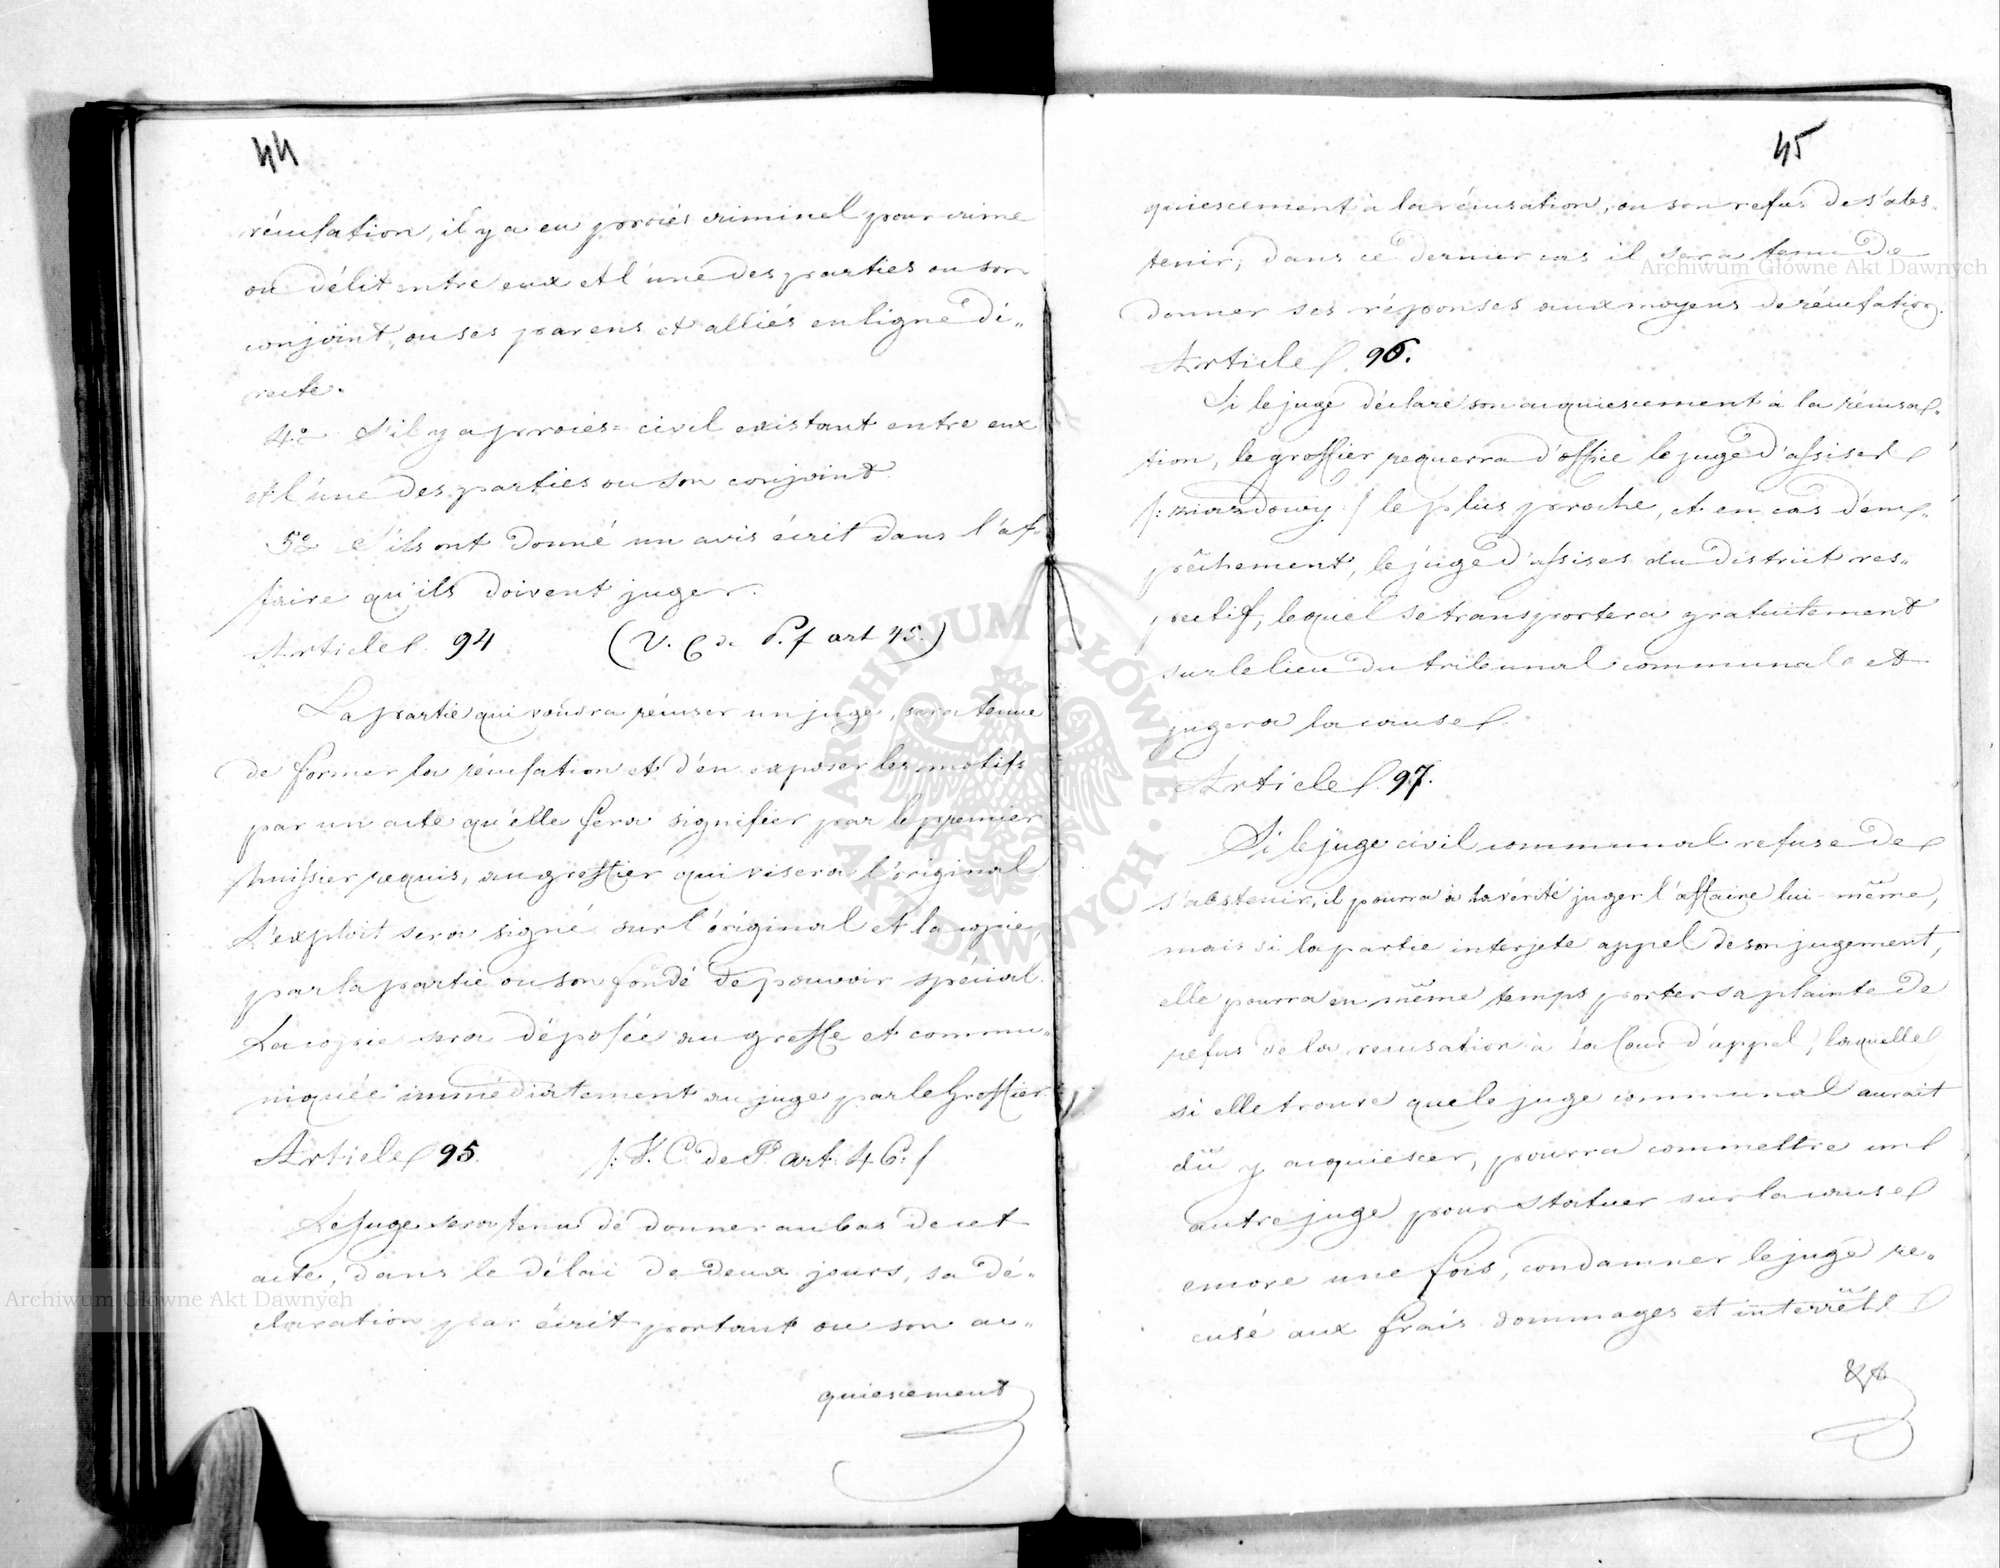 44
récusation, il y a eu procès criminel pour crime
ou délit entre eux et l'une des parties ou son
conjoint, ou ses parens et alliés en ligne di„
recte.
4o S'il y a procès civil existant entre eux
et l'une des parties ou son conjoint.
5o S'ils ont donné un avis écrit dans l'af„
faire qu'ils doivent juger.
Article 94 (V. C de P. f art 45.)
La partie qui voudra récuser un juge, sera tenue
de former la récusation et d'en exposer les motifs
par un acte qu'elle fera signifier par le premier
huissier requis, au greffier qui visera l'original
L'exploit sera signé sur l'original et la copie,
par la partie ou son fondé de pouvoir spécial.
La copie sera déposée au greffe et commu„
niquée immédiatement au juge par le Greffier
Article 95. /: V. C de P art. 46 :/
Le Juge sera tenu de donner au bas de cet
acte, dans le délai de deux jours, sa dé„
claration par écrit portant ou son ac„
quiescement
45
quiescement à la récusation, ou son refus de s'abs„
tenir; dans ce dernier cas il sera tenu de
donner ses réponses aux moyens de récusation.
Article 96.
Si le juge déclare son acquiescement à la récusa„
tion, le greffier requerra d'office le juge d'assises
/: :/ le plus proche, et en cas d'em„
pêchement, le juge d'assises du district res„
pectif, lequel se transportera gratuitement
sur le lieu du tribunal communal et
jugera la cause.
Article 97.
Si le juge civil communal refuse de
s'abstenir, il pourra à la vérité juger l'affaire lui-même,
mais si la partie interjete appel de son jugement,
elle pourra en même temps porter sa plainte de
refus de la recusation à la Cour d'appel, laquelle
si elle trouve que le juge communal aurait
dû y acquiescer, pourra commettre un
autre juge pour statuer sur la cause
encore une fois, condamner le juge re„
cusé aux frais dommages et interrêts
&
Archiwum Główne Akt Dawnych
Archiwum Główne Akt Dawnych
ARCHIWUM GŁÓWNE AKT DAWNYCH